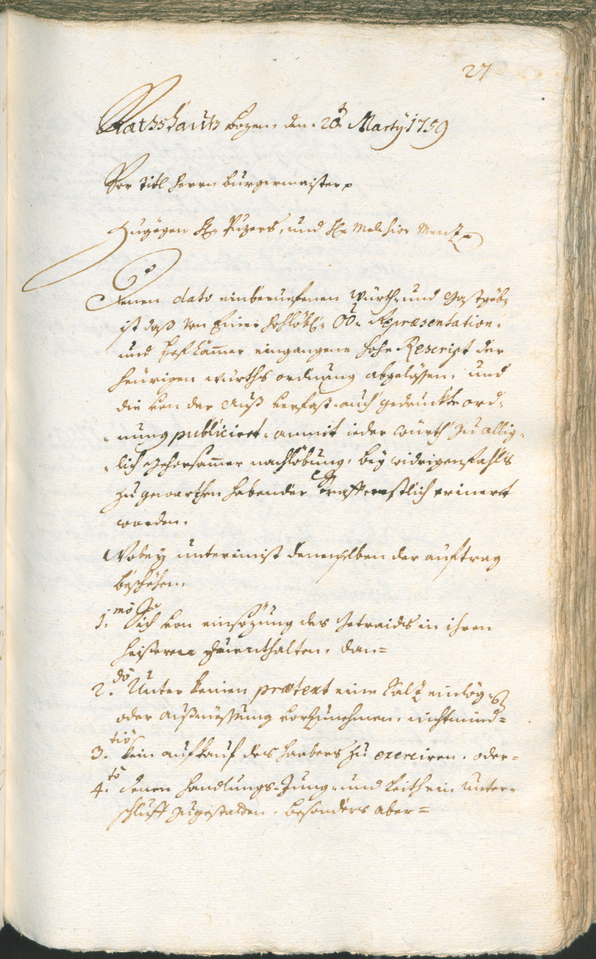 27
Rathshauß Bozen den 20t Martÿ 1759
Vor titl Herrn Burgermaister p
Zugegen H: Puzers, und H: Melchior Menz p
Denen dato einberueffenen Würth und Gastgeb
ist daß von Einer Hochlöbl: OÖ: Repræsentation
und HofCammer eingangene hohe Rescript der
heürigen würths ordnung abgelösen, und
die von der auß verfast auch gedruckte ord,
nung publiciert, anmit ieder würth zu allig,
lich gehorsammer nachlöbung, beÿ widrigenfahls
zu gewarthen habender Straff ernstlich erinert
worden.
Wobeÿ unterainist denenselben der auftrag
beschöhen,
1mo Sich von einsözung des getraids in ihren
heüseren zu enthalten, dan=
2do Unter keinen prætext eine Salz einlög
oder außmössung vorzunehmen, nichtmind=
3tio kein aufkauf des haabers zu exerciren, oder=
4to denen handlungs Jung und leithen unter,
schluff zugestatten, besonders aber=